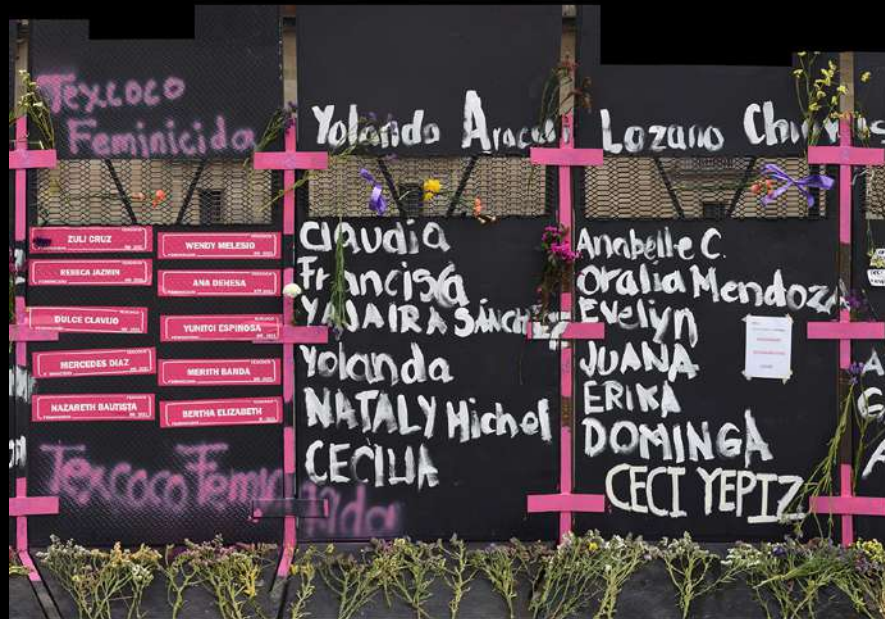 Texcoco
Feminicida
Yolanda Araceli Lozano
ZULI CRUZ
WENDY MELESIO
REBECA JAZMIN
ANA DEHESA
DULCE CLAVIJO
YUNITCI ESPINOSA
MERCEDES DIAZ
MERITH BANDA
NAZARETH BAUTISTA
BERTHA ELIZABETH
Texcoco Feminicida
Claudia
Francisca
YAJAIRA SÁNCHEZ
Yolanda
NATALY Michel
CECILIA
Anabelle C.
Oralia Mendoza
Evelyn
JUANA
ERIKA
DOMINGA
CECI YEPIZ